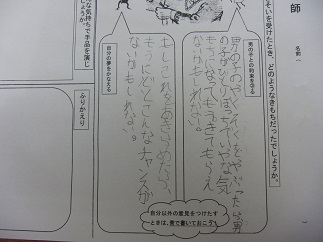 師
名前
そいを受けたとき、どのようなきもちだったでしょうか。
男の子との約束を守る
男の子のやくそくをやぶったら男
の子がひとりぼっちでいやな気
もちになってもうきてもらえ
ないかもしれない。
自分の夢をかなえる
もしこれをあきらめたら、
もうにどとこんなチャンスが
ないかもしれない。
自分以外の意見をつけたす
ときは、青で書いておこう
な気持ちで手品を演じ
しょうか。
ふりかえり